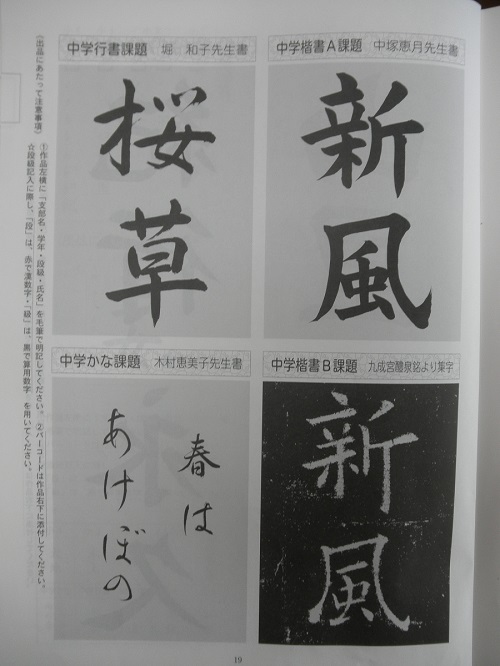 中学楷書A課題 中塚恵月先生書
新風
中学行書課題 堀 和子先生書
桜草
中学楷書B課題 九成宮醴泉銘より集字
新風
中学かな課題 木村恵美子先生書
春は
あけぼの
《出品にあたって注意事項》
①作品左横に「支部名・学年・段級・氏名」を毛筆で明記してください。②バーコードは作品右下に添付してください。
☆段級記入に際し、「段」は、赤で漢数字・「級」は、黒で算用数字 を用いてください。
19